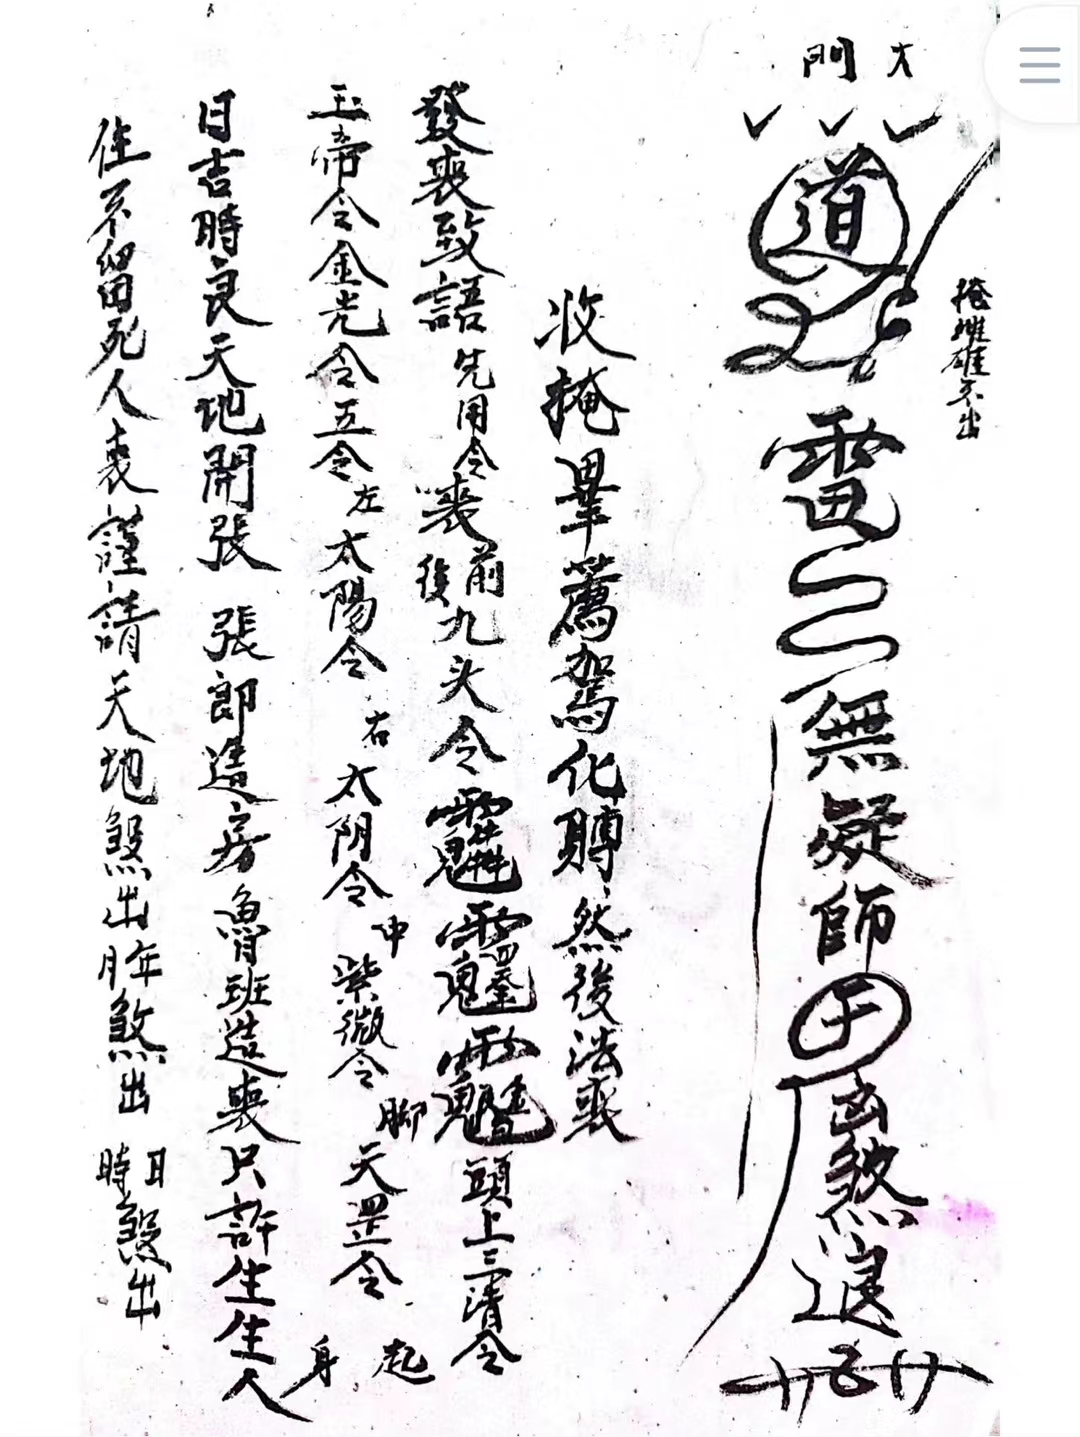 大門
道
雷
無疑師
凶煞退
收掩畢篙駕化賻然後法喪
發喪致語先用令喪前後九头令
頭上三清令
玉帝令金光令五令左太陽令右太阴令中紫微令脚天罡令起身
日吉時良天地開張 張郎造房魯班造喪只許生生人
住不留死人喪謹請天地煞出年月煞出日時煞出